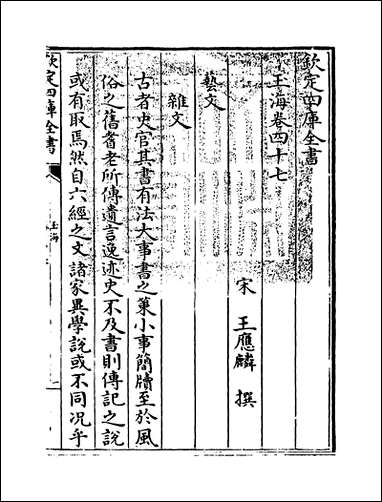 欽定四庫全書
玉海卷四十七
宋 王應麟 撰
藝文
雜文
古者史官其書有法大事書之策小事簡牘至於風
俗之舊耆老所傳遺言逸迹史不及書則傳記之說
或有取焉然自六經之文諸家異學說或不同况乎
欽定四庫全書
玉海